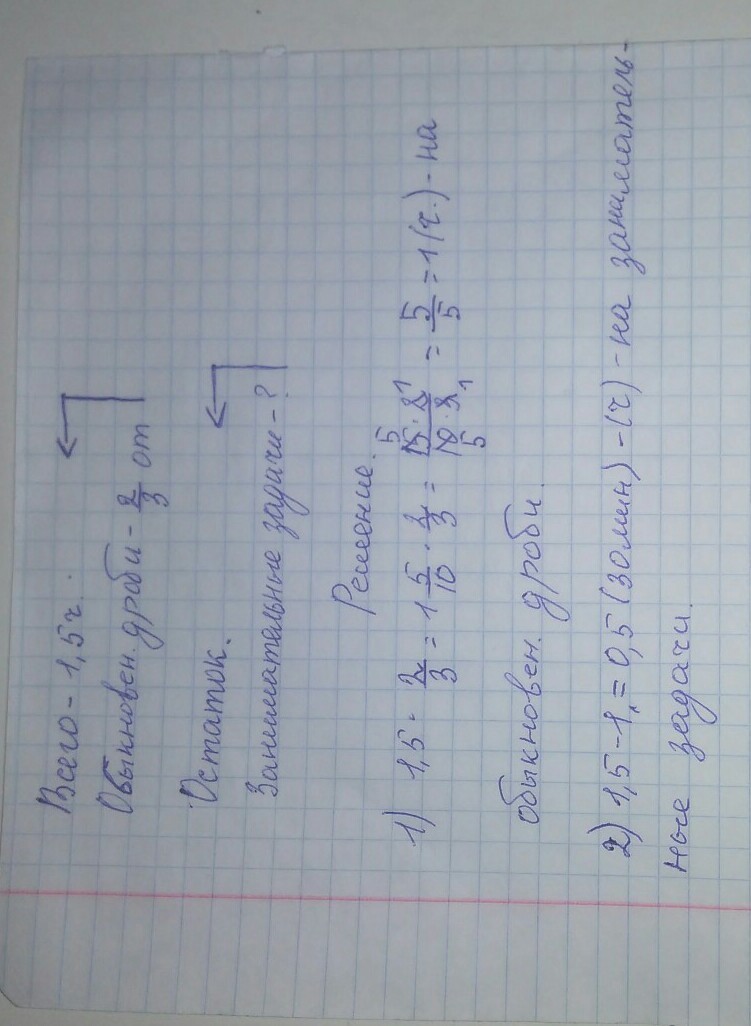 Всего - 1,5 ч.
Обыкновен. дроби - 2/3 от
Остаток.
Занимательные задачи - ?
Решение.
1) 1,5 · 2/3 = 1 5/10 · 2/3 = 15 · 2/10 · 3 = 5/5 = 1 (ч.) - на
обыкновен. дроби.
2) 1,5 - 1 = 0,5 (30 мин) - (ч) - на заниматель-
ные задачи.